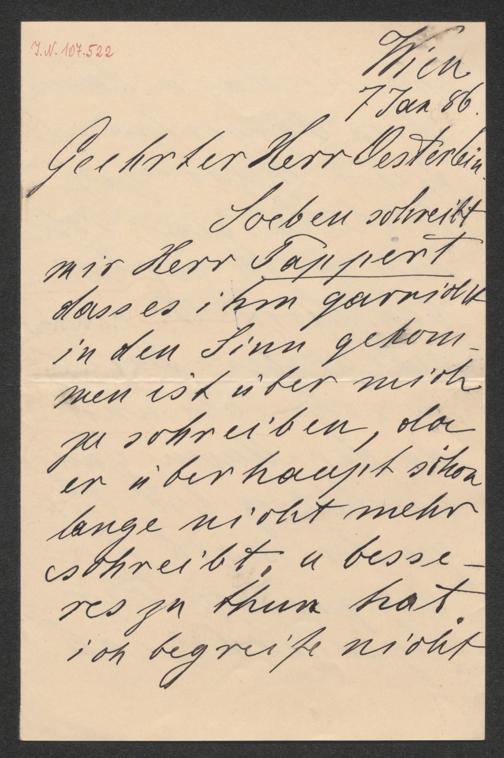 J.N. 107.522
Wien
7 Jan 86.
Geehrter Herr Oesterlein.
Soeben schreibt
mir Herr Tappert
dass es ihm gar nicht
in den Sinn gekom-
men ist über mich
zu schreiben, da
er überhaupt schon
lange nicht mehr
schreibt, u besse-
res zu thun hat.
ich begreife nicht